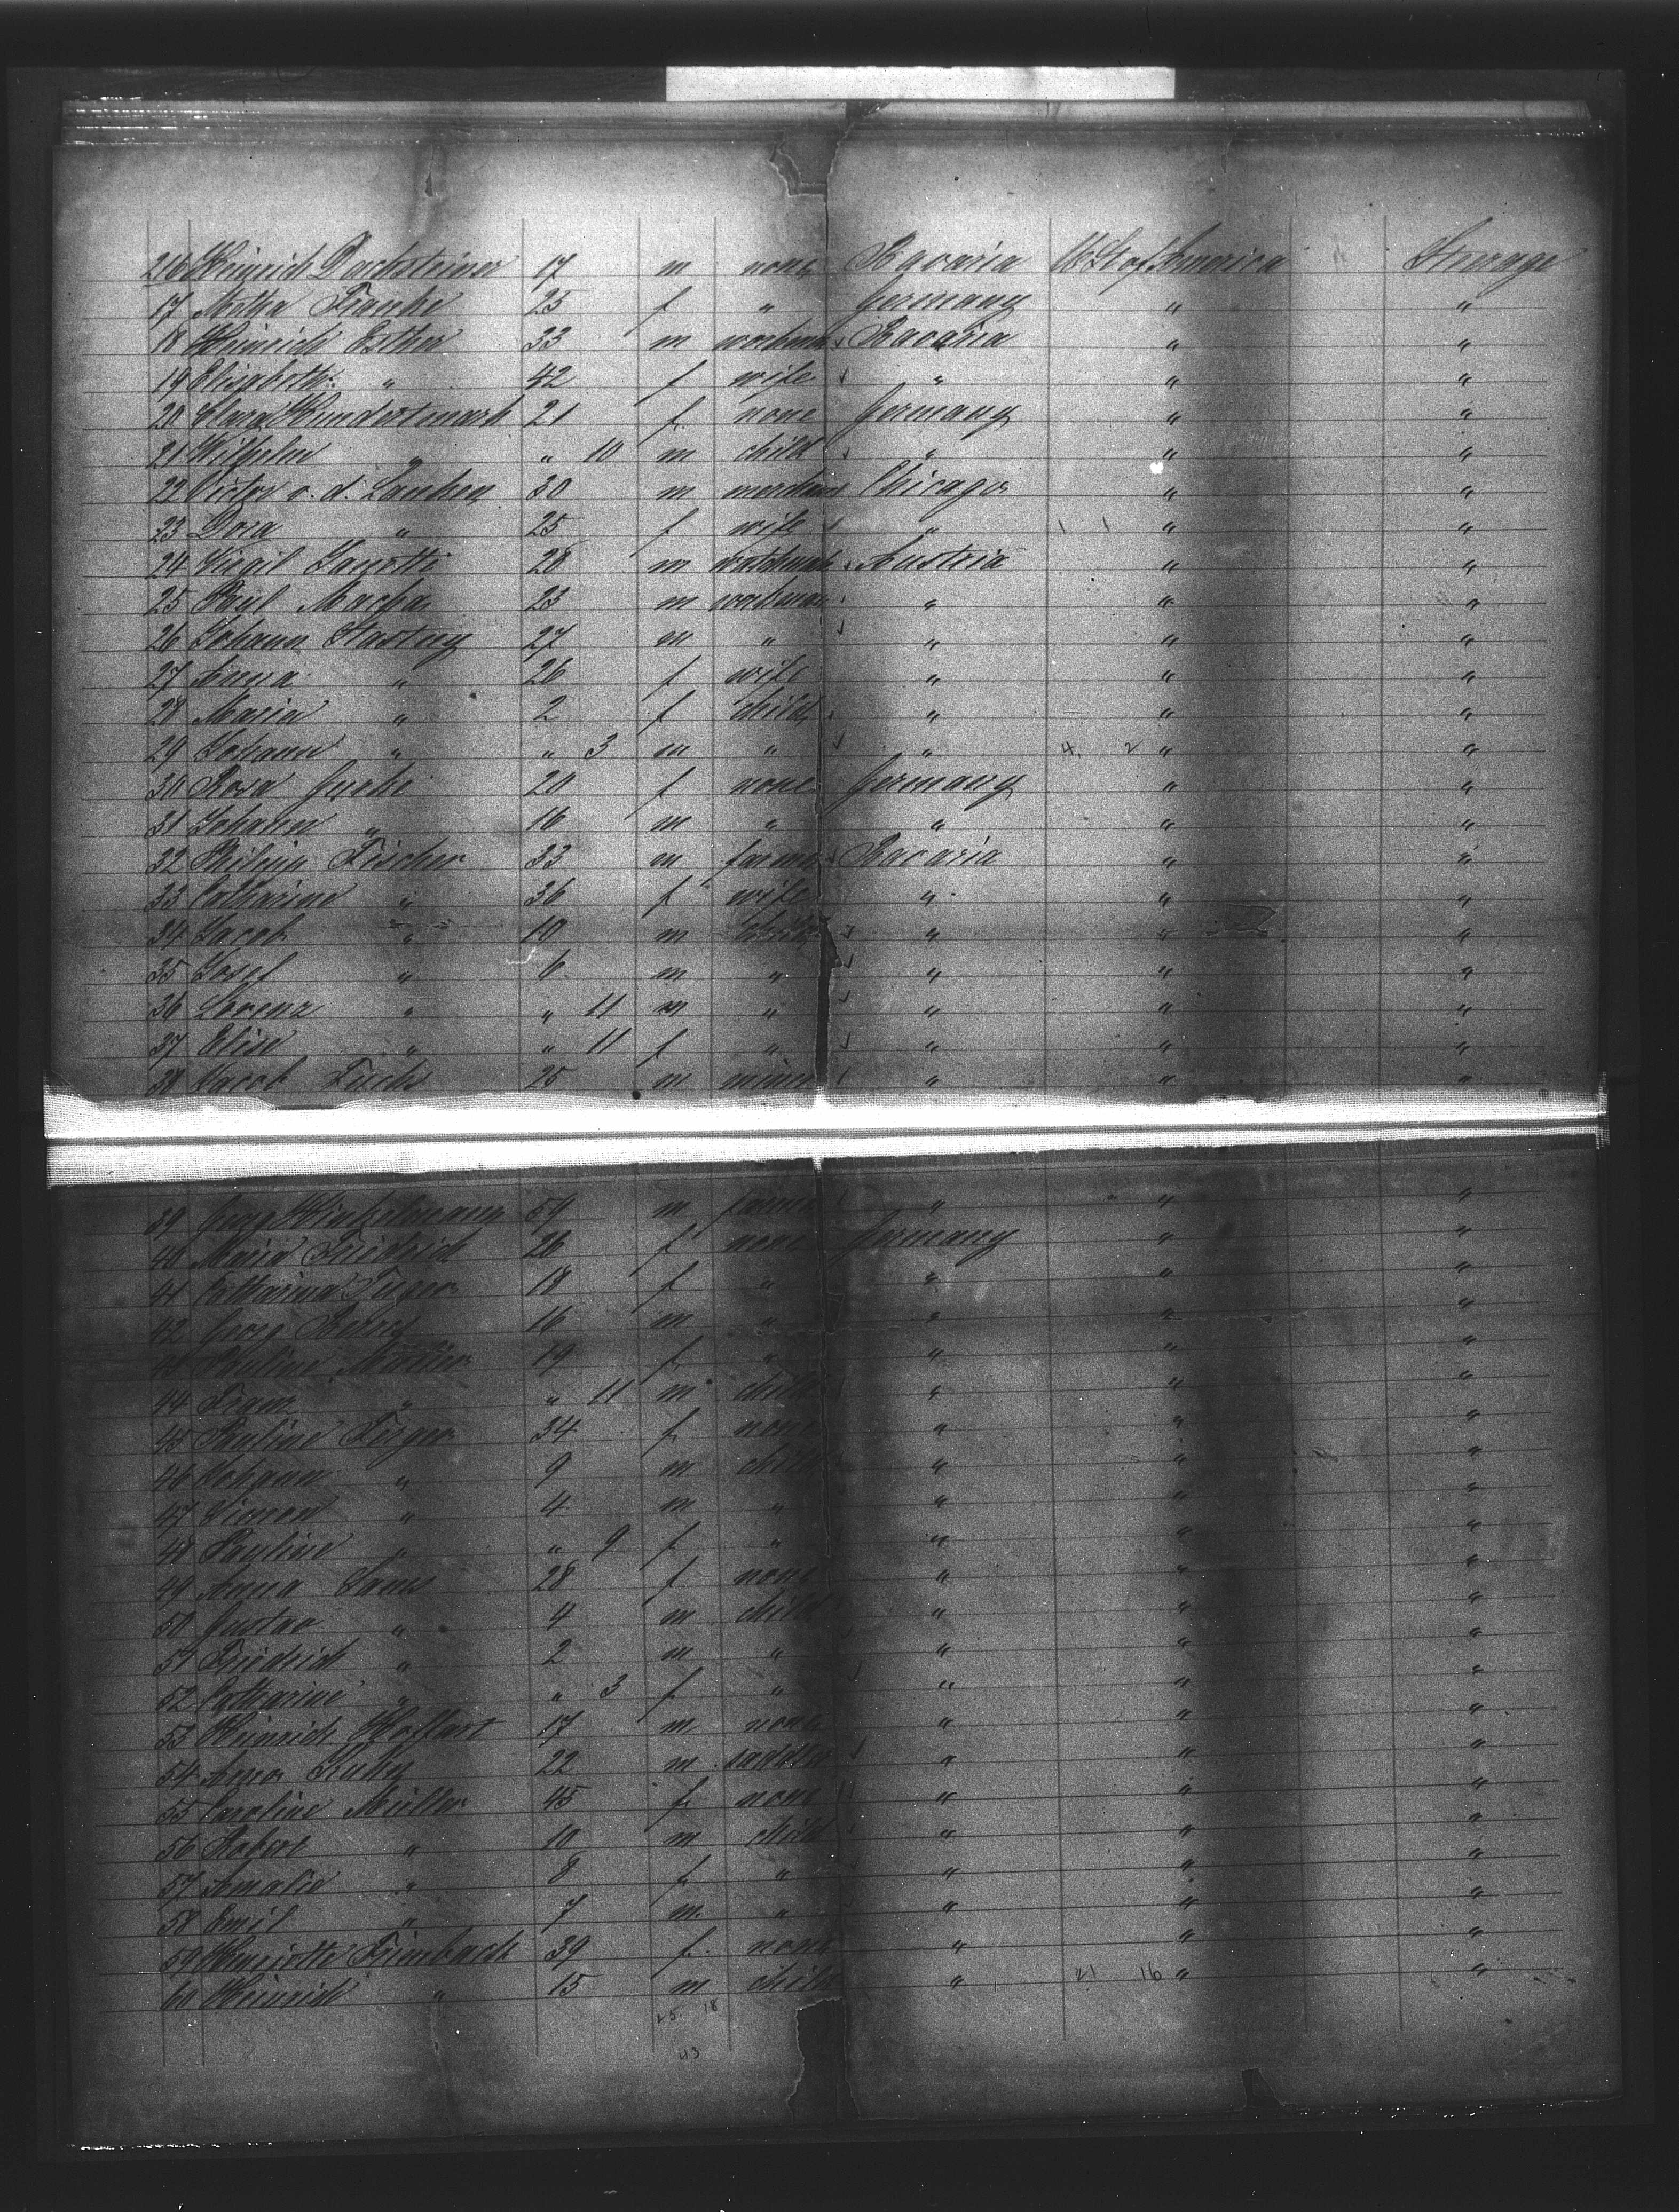 216 Heinrich Dachsteiner 17 m none Bavaria U St of America Steerage
17 Metha Franke 25 f " Germany " "
18 Heinrich Esther 33 m workman Bavaria " "
19 Elisabeth " 42 f wife " " "
20 Clara Hundertmark 21 f none Germany " "
21 Wilhelm " " 10 m child " " "
22 Victor v. d. Lancken 30 m merchant Chicago " "
23 Dora " 25 f wife " 1 1 " "
24 Virgil Zanotti 28 m Austria " "
25 Paul Macha 23 m workman " " "
26 Johann Stastny 27 m " " " "
27 Anna " 26 f wife " " "
28 Maria " 2 f child " " "
29 Johann " " 3 m " " 4. 2 " "
30 Rosa 20 f none Germany " "
31 Johann " 16 m " " " "
32 Philipp Fischer 33 m farmer Bavaria " "
33 Catharine " 36 f wife " " "
34 Jacob " 10 m child " " "
35 Josef " 6 m " " " "
36 Lorenz " " 11 m " " " "
37 Elise " " 11 f " " " "
38 Jacob Fuchs 25 m miner " " "
39 Georg Winkelmann 59 m farmer " " "
40 Maria Friedrich 26 f none Germany " "
41 Catharina 18 f " " " "
42 Georg 16 m " " " "
43 Pauline 19 f " " " "
44 Franz " " 11 m child " " "
45 Pauline 34 f none " " "
46 Johann " 9 m child " " "
47 Simon " 4 m " " " "
48 Pauline " " 9 f " " " "
49 Anna Sans 28 f none " " "
50 Gustav " 4 m child " " "
51 Friedrich " 2 m " " " "
52 Catharine " " 3 f " " " "
53 Heinrich Hoffart 17 m none " " "
54 Kuhn 22 m saddler " " "
55 Caroline Müller 45 f none " " "
56 Robert " 10 m child " " "
57 Amalie " 8 f " " " "
58 Emil " 7 m. " " " "
59 Henriette Frimbach 39 f. none " " "
60 Heinrich " 15 m child " 21 16 " "
25 18
43